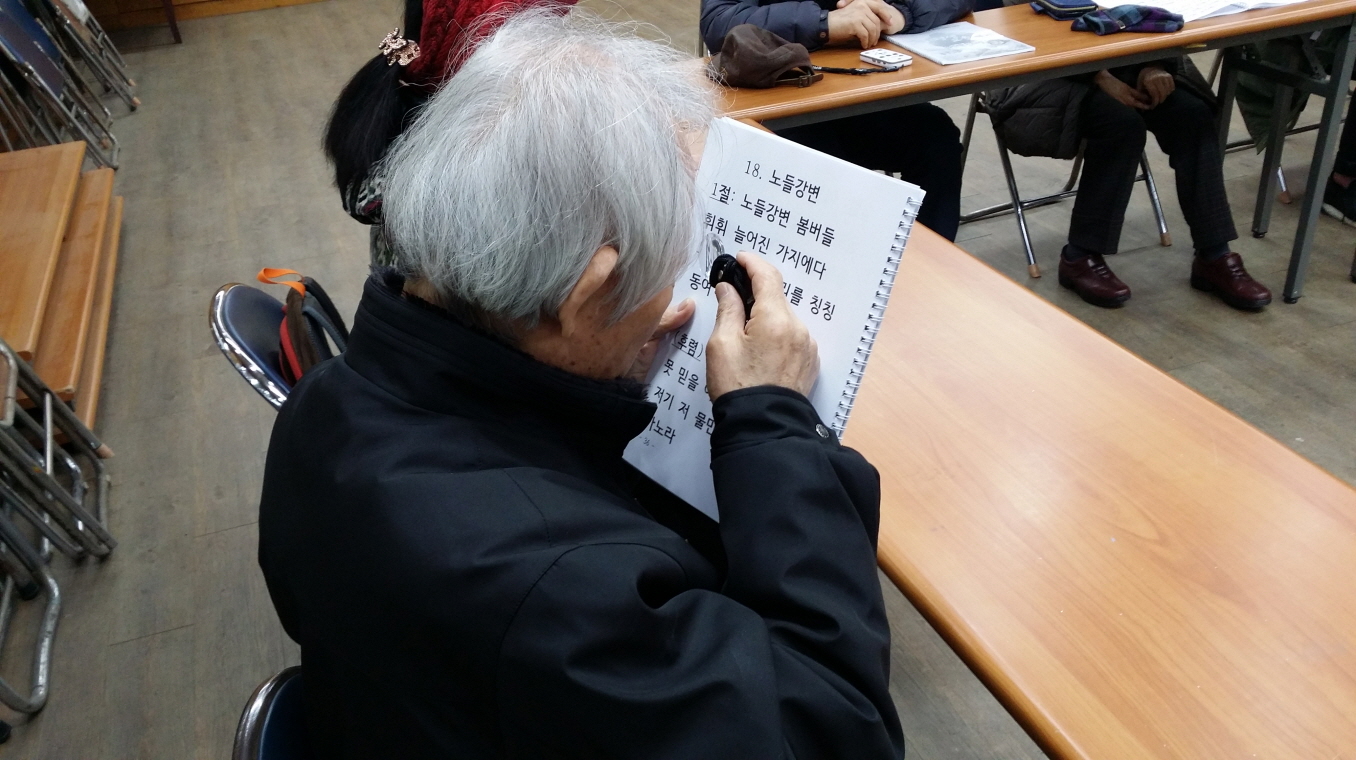 18. 노들강변
1절: 노들강변 봄버들
휘휘 늘어진 가지에다
동여 칭칭
(후렴)
못 믿을
저기 저 물만
가노라